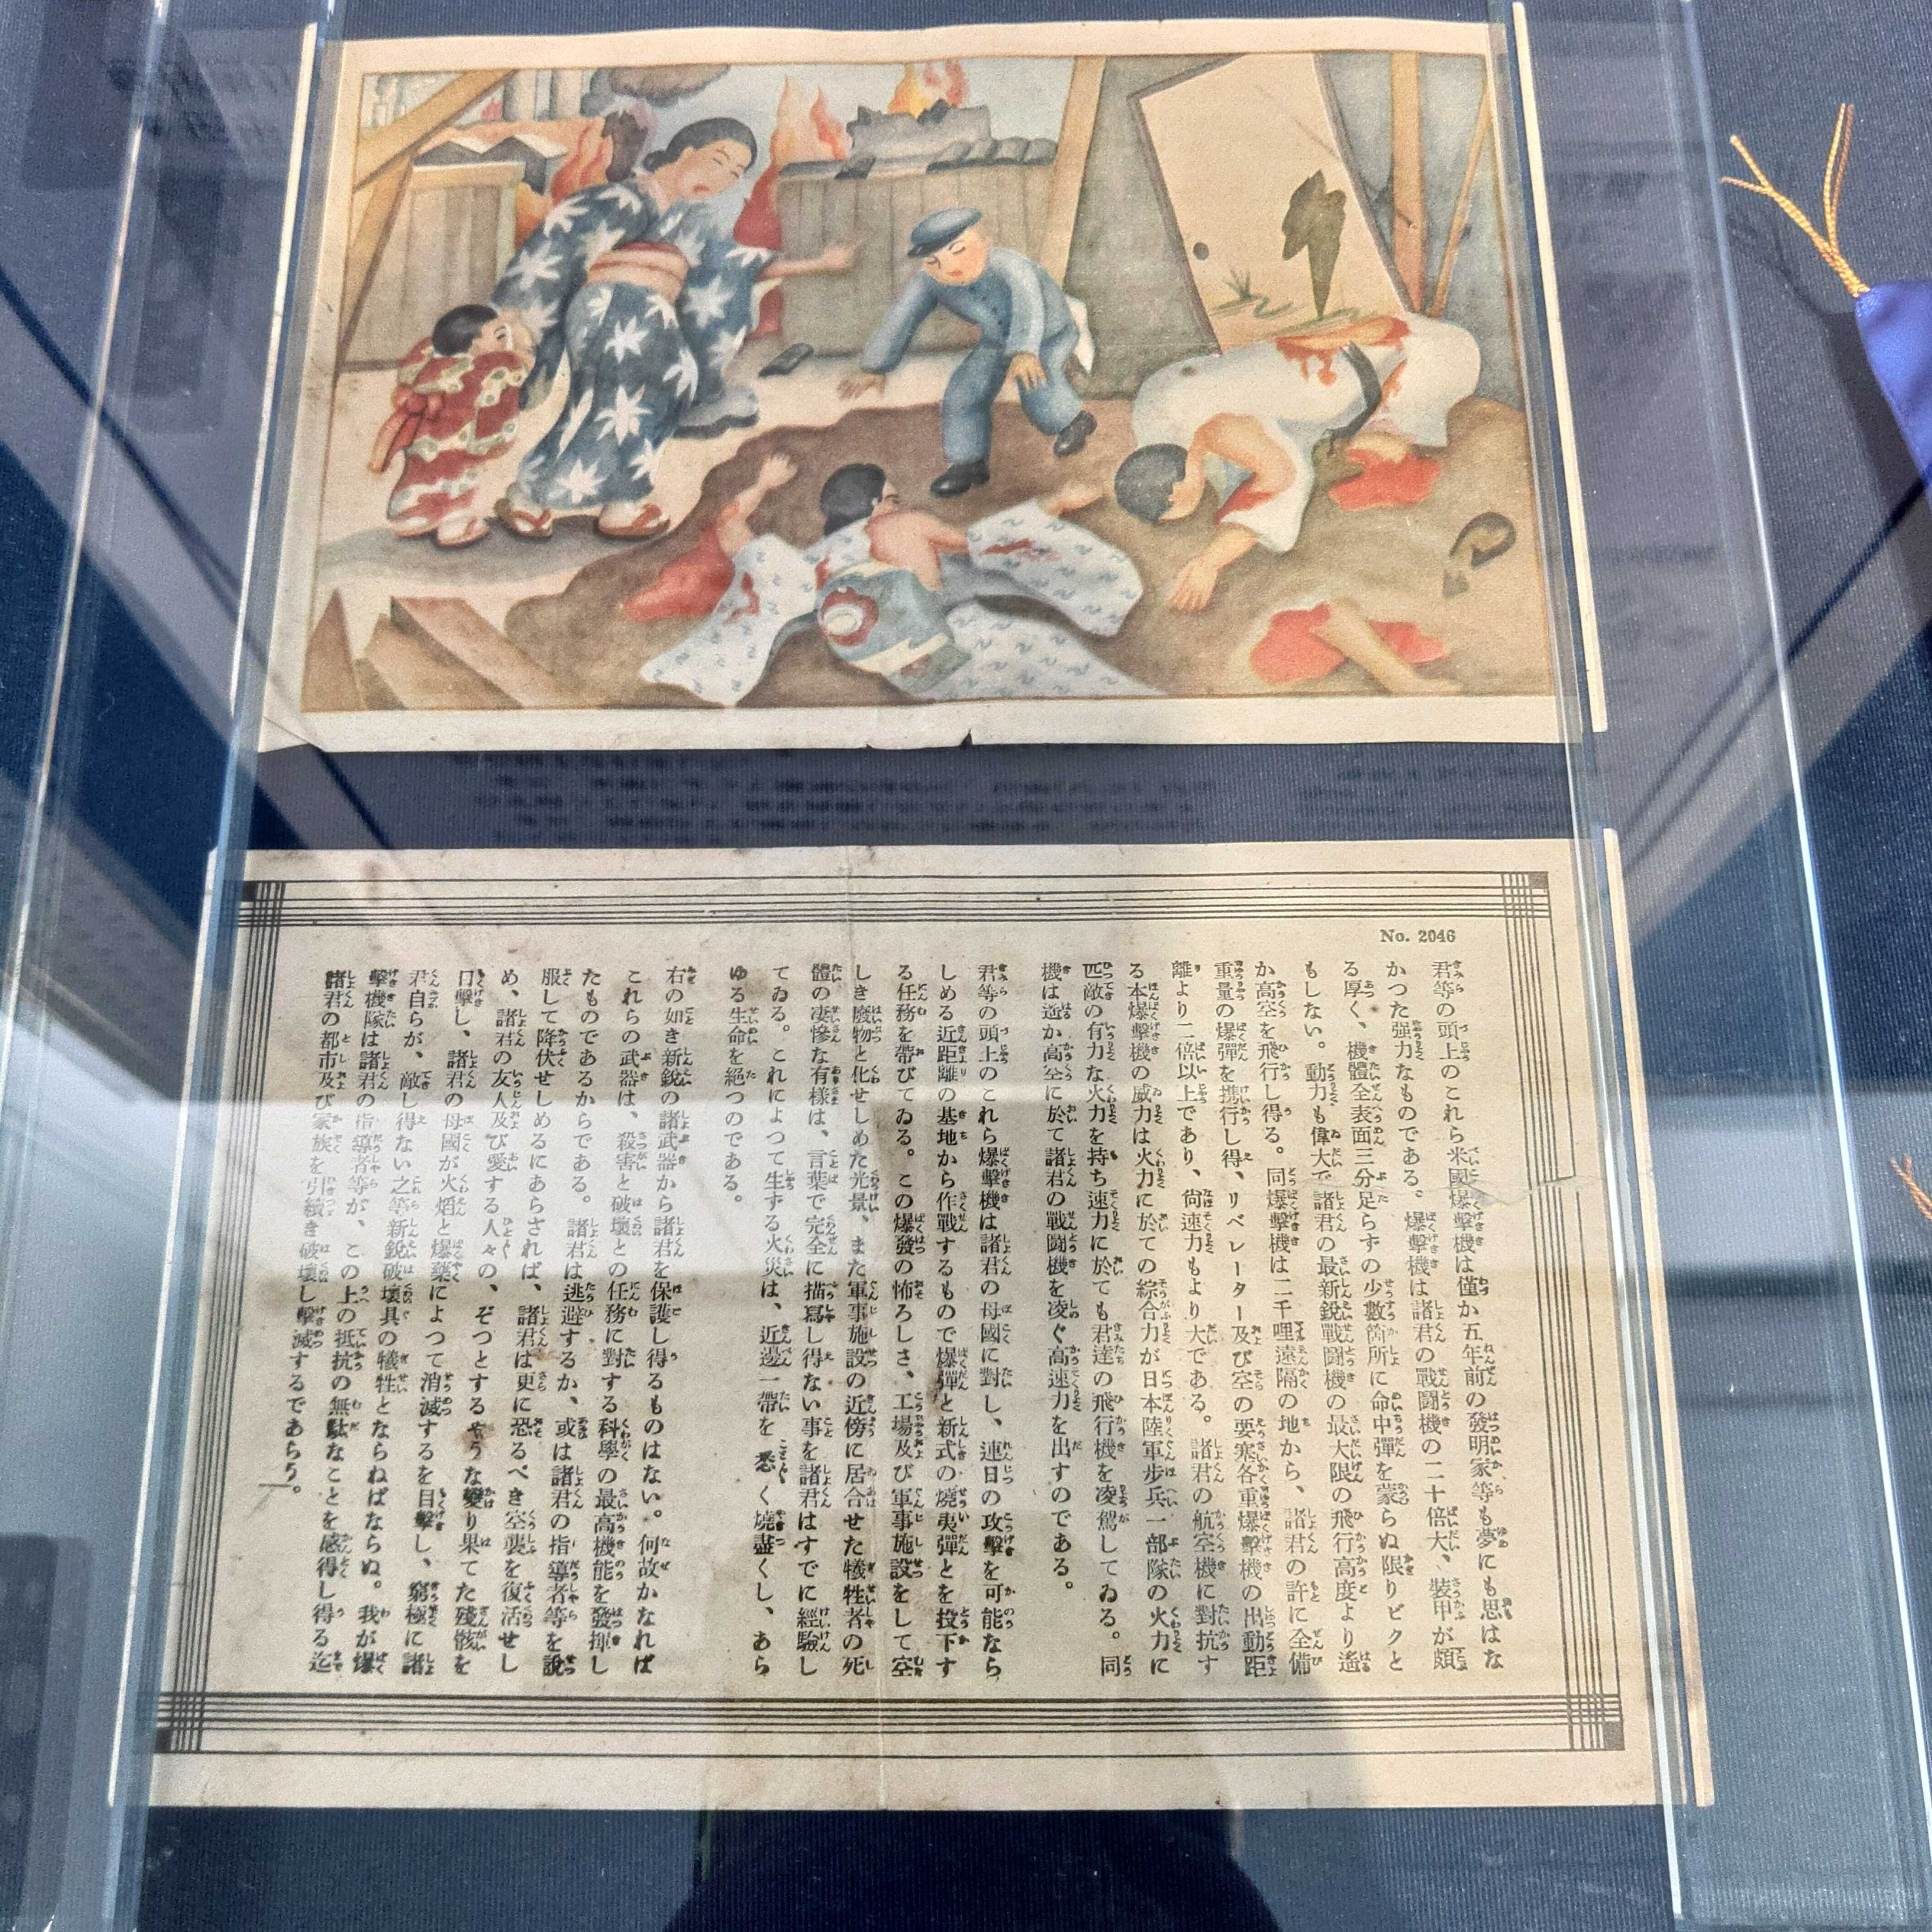 No. 2046
君等の頭上のこれら米國爆擊機は僅か五年前の發明家等も夢にも思はな
かつた强力なものである。爆擊機は諸君の戰鬪機の二十倍大、裝甲が頗
る厚く、機體全表面三分足らずの少數箇所に命中彈を蒙らぬ限りビクと
もしない。動力も偉大で諸君の最新銳戰鬪機の最大限の飛行高度より遙
か高空を飛行し得る。同爆擊機は二千哩遠隔の地から、諸君の許に全備
重量の爆彈を携行し得、リベレーター及び空の要塞各重爆擊機の出動距
離より二倍以上であり、尙速力もより大である。諸君の航空機に對抗す
る本爆擊機の威力は火力に於ての綜合力が日本陸軍步兵一部隊の火力に
匹敵の有力な火力を持ち速力に於ても君達の飛行機を凌駕してゐる。同
機は遙か高空に於て諸君の戰鬪機を凌ぐ高速力を出すのである。
君等の頭上のこれら爆擊機は諸君の母國に對し、連日の攻擊を可能なら
しめる近距離の基地から作戰するもので爆彈と新式の燒夷彈とを投下す
る任務を帶びてゐる。この爆發の怖ろしさ、工場及び軍事施設をして空
しき廢物と化せしめた光景、また軍事施設の近傍に居合せた犧牲者の死
體の凄慘な有樣は、言葉で完全に描寫し得ない事を諸君はすでに經驗し
てゐる。これによつて生ずる火災は、近邊一帶を悉く燒盡くし、あら
ゆる生命を絕つのである。
右の如き新銳の諸武器から諸君を保護し得るものはない。何故かなれば
これらの武器は、殺害と破壞との任務に對する科學の最高機能を發揮し
たものであるからである。諸君は逃避するか、或は諸君の指導者等を說
服して降伏せしめるにあらされば、諸君は更に恐るべき空襲を復活せし
め、諸君の友人及び愛する人々の、ぞつとするやうな變り果てた殘骸を
目擊し、諸君の母國が火焰と爆藥によつて消滅するを目擊し、窮極に諸
君自らが、敵し得ない之等新銳破壞具の犧牲とならねばならぬ。我が爆
擊機隊は諸君の指導者等が、この上の抵抗の無駄なことを感得し得る迄
諸君の都市及び家族を引續き破壞し擊滅するであらう。